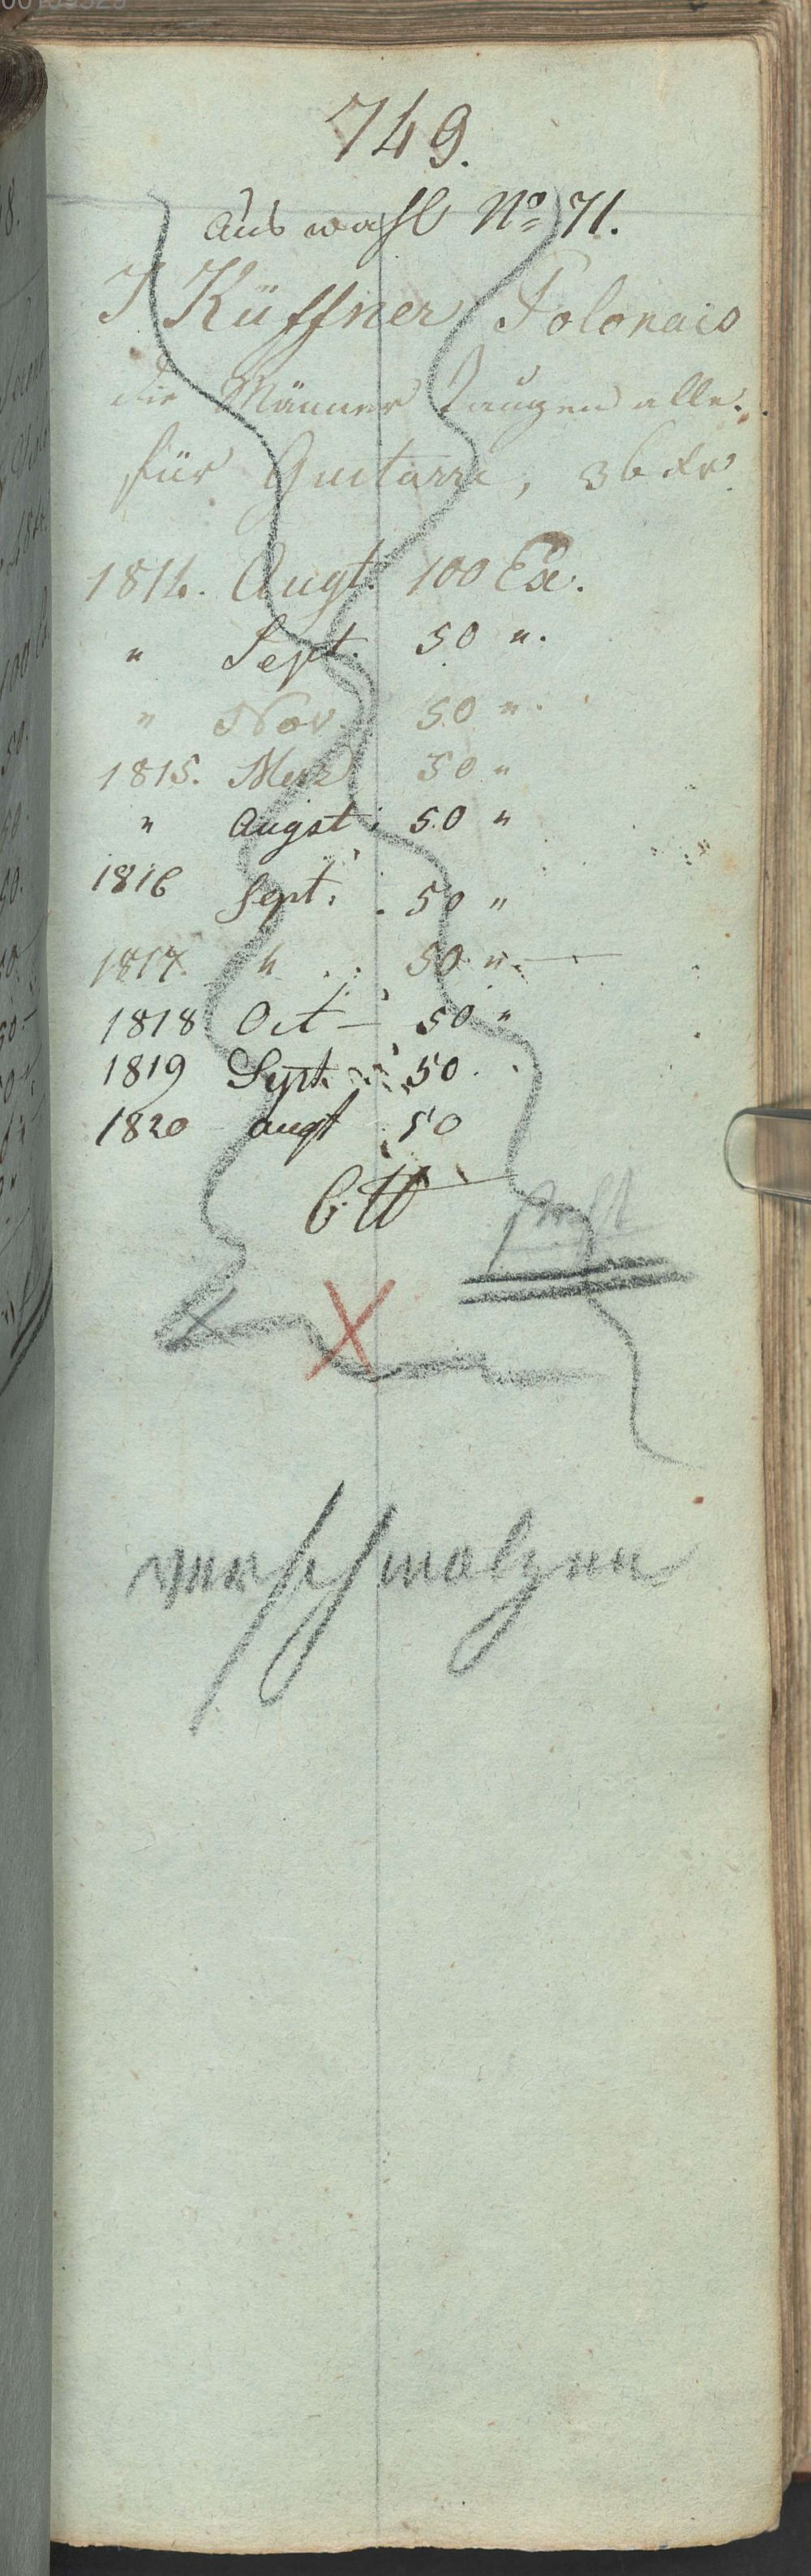 749.
Auswahl No 71.
J Küffner Polonais
die Männer Taugen alle.
für Guitarre, 36 Xr
1814. Augt. 100 Ex.
" Sept. 50 ".
" Nov. 50 ".
1815. Merz 50 "
" Augst. 50 "
1816 Sept. 50 "
1817. " 50 ".
1818 Oct – 50 "
1819 Sept. 50
1820 augt 50
X
verschmolzen